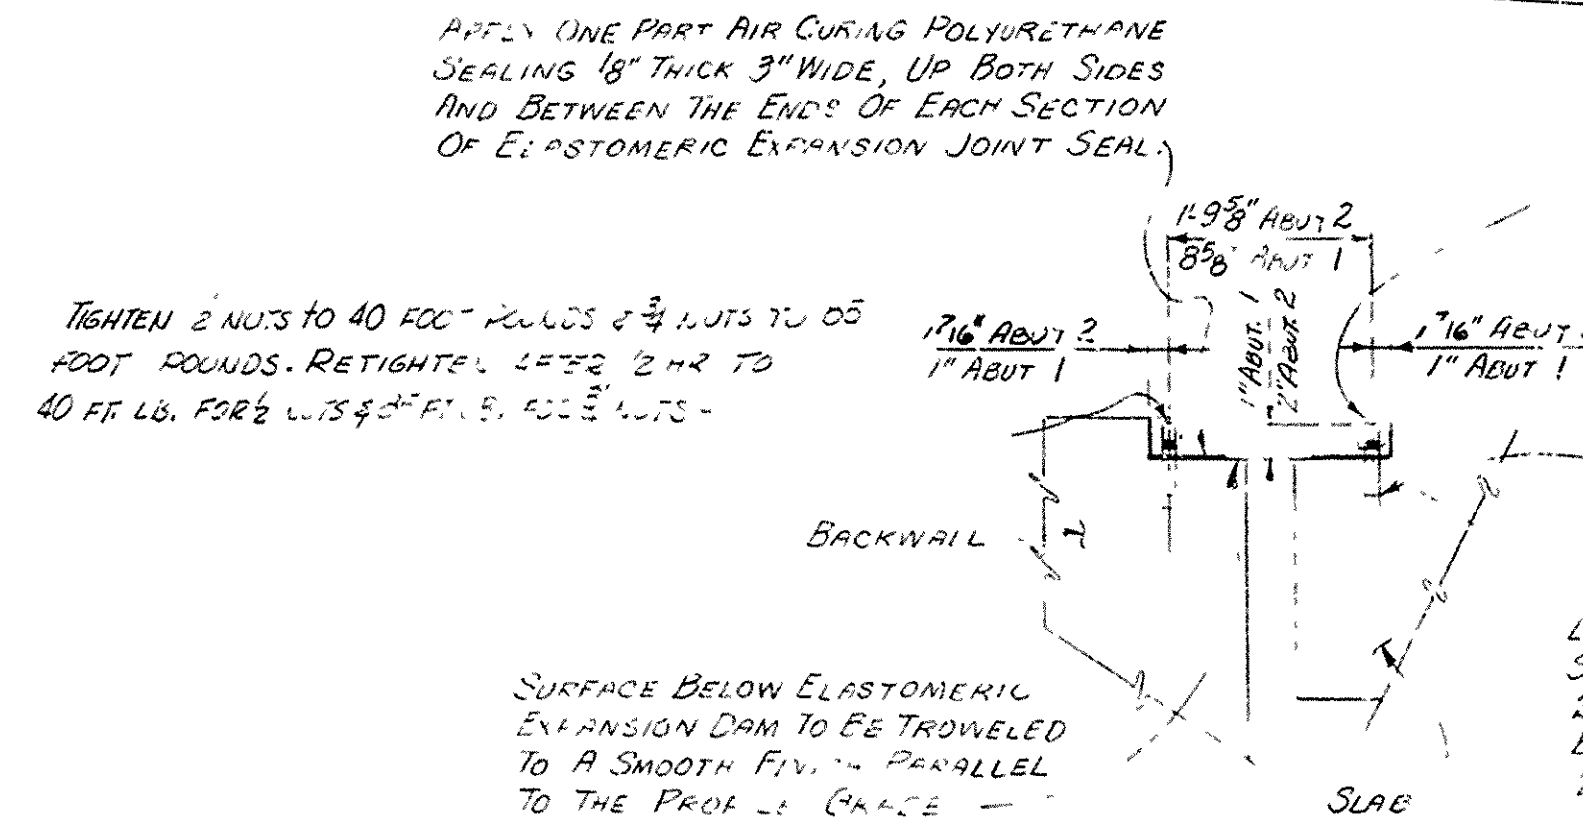 APPLY ONE PART AIR CURING POLYURETHANE
SEALING 1/8" THICK 3" WIDE, UP BOTH SIDES
AND BETWEEN THE ENDS OF EACH SECTION
OF ELASTOMERIC EXPANSION JOINT SEAL.
1'-9 5/8" ABUT 2
8 5/8" ABUT 1
TIGHTEN 2 NUTS TO 40 FOOT POUNDS & 3/4 NUTS TO
FOOT POUNDS. RETIGHTEN AFTER 1/2 HR TO
40 FT. LB. FOR 1/2 NUTS & FT. LB. FOR NUTS
1 7/16" ABUT 2
1" ABUT 1
1" ABUT. 1
2" ABUT. 2
1 7/16" ABUT
1" ABUT 1
BACKWALL
SURFACE BELOW ELASTOMERIC
EXPANSION DAM TO BE TROWELED
TO A SMOOTH FINISH PARALLEL
TO THE PROFILE GRADE
SLAB